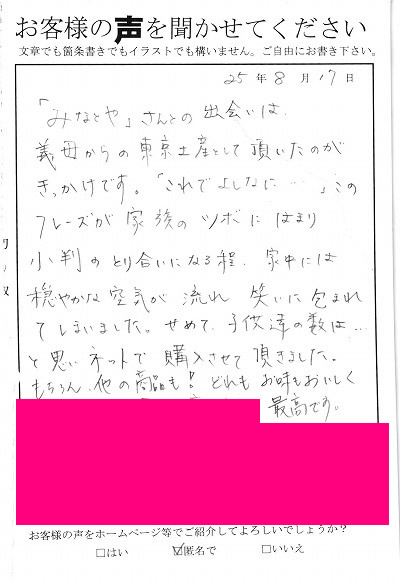 お客様の声を聞かせてください
文章でも箇条書きでもイラストでも構いません。ご自由にお書き下さい。
25年8月17日
「みなとや」さんとの出会いは、
義母からの東京土産として頂いたのが
きっかけです。「これでよしなに…」この
フレーズが家族のツボにはまり
小判のとり合いになる程、家中には
穏やかな空気が流れ 笑いに包まれ
てしまいました。せめて、子供達の数は…
と思いネットで購入させて頂きました。
もちろん、他の商品も!どれもお味もおいしく
最高です。
お客様の声をホームページ等でご紹介してよろしいでしょうか?
□はい ☑匿名で □いいえ